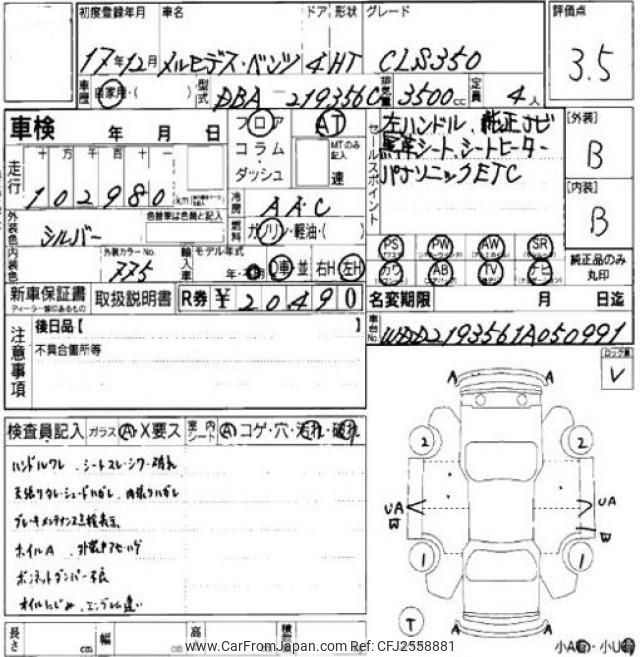 初度登録年月 車名 ドア 形状 グレード 評価点
17年12月 メルセデス・ベンツ 4 HT CLS350 3.5
車歴 自家用・( ) 型式 DBA-219356C 排気量 3500cc 定員 4人
車検 年 月 日
フロア
コラム
・
ダッシュ
AT
MTのみ記入
速
セールスポイント
左ハンドル、純正ナビ
黒革シート、シートヒーター
パナソニックETC
[外装]
B
[内装]
B
走行 十万千百十一
102980
冷房 AAC
外装色 シルバー
色替車は元色と記入
燃料 ガソリン・軽油・( )
PS PW AW SR
カワ AB TV ナビ
純正品のみ丸印
内装色 外装カラーNo. 775
輸入車 モデル年式 年・
D車 並 右H 左H
新車保証書
ディーラー印のあるもの
取扱説明書
R券 ¥ 20490
名変期限 月 日迄
車台No. WDD2193561A050991
注意事項
後日品【 】
不具合箇所等
検査員記入 ガラス A・X要ス 室内シート A コゲ・穴・汚れ・破れ
ハンドルワレ、シートスレ・シワ・破れ
ブレーキメンテナンス点検表示
ホイルA
ボンネットダンパー不良
オイルにじみ、エンジンに違い
ロック有
レ
A A
2 2
UA UA
W W
1 1
T
A A
小A 小U
長さ cm 幅 cm 高 積
www.CarFromJapan.com Ref: CFJ2558881